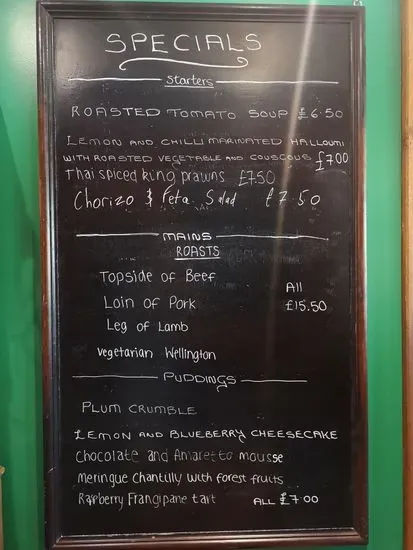 SPECIALS
Starters
ROASTED TOMATO SOUP £6.50
LEMON AND CHILLI MARINATED HALLOUMI
WITH ROASTED VEGETABLE AND COUSCOUS £7.00
Thai spiced king prawns £7.50
Chorizo & Feta Salad £7.50
MAINS
ROASTS
Topside of Beef
All
Loin of Pork £15.50
Leg of Lamb
Vegetarian Wellington
PUDDINGS
PLUM CRUMBLE
LEMON AND BLUEBERRY CHEESECAKE
Chocolate and Amaretto mousse
Meringue Chantilly with forest fruits
Raspberry Frangipane tart ALL £7.00